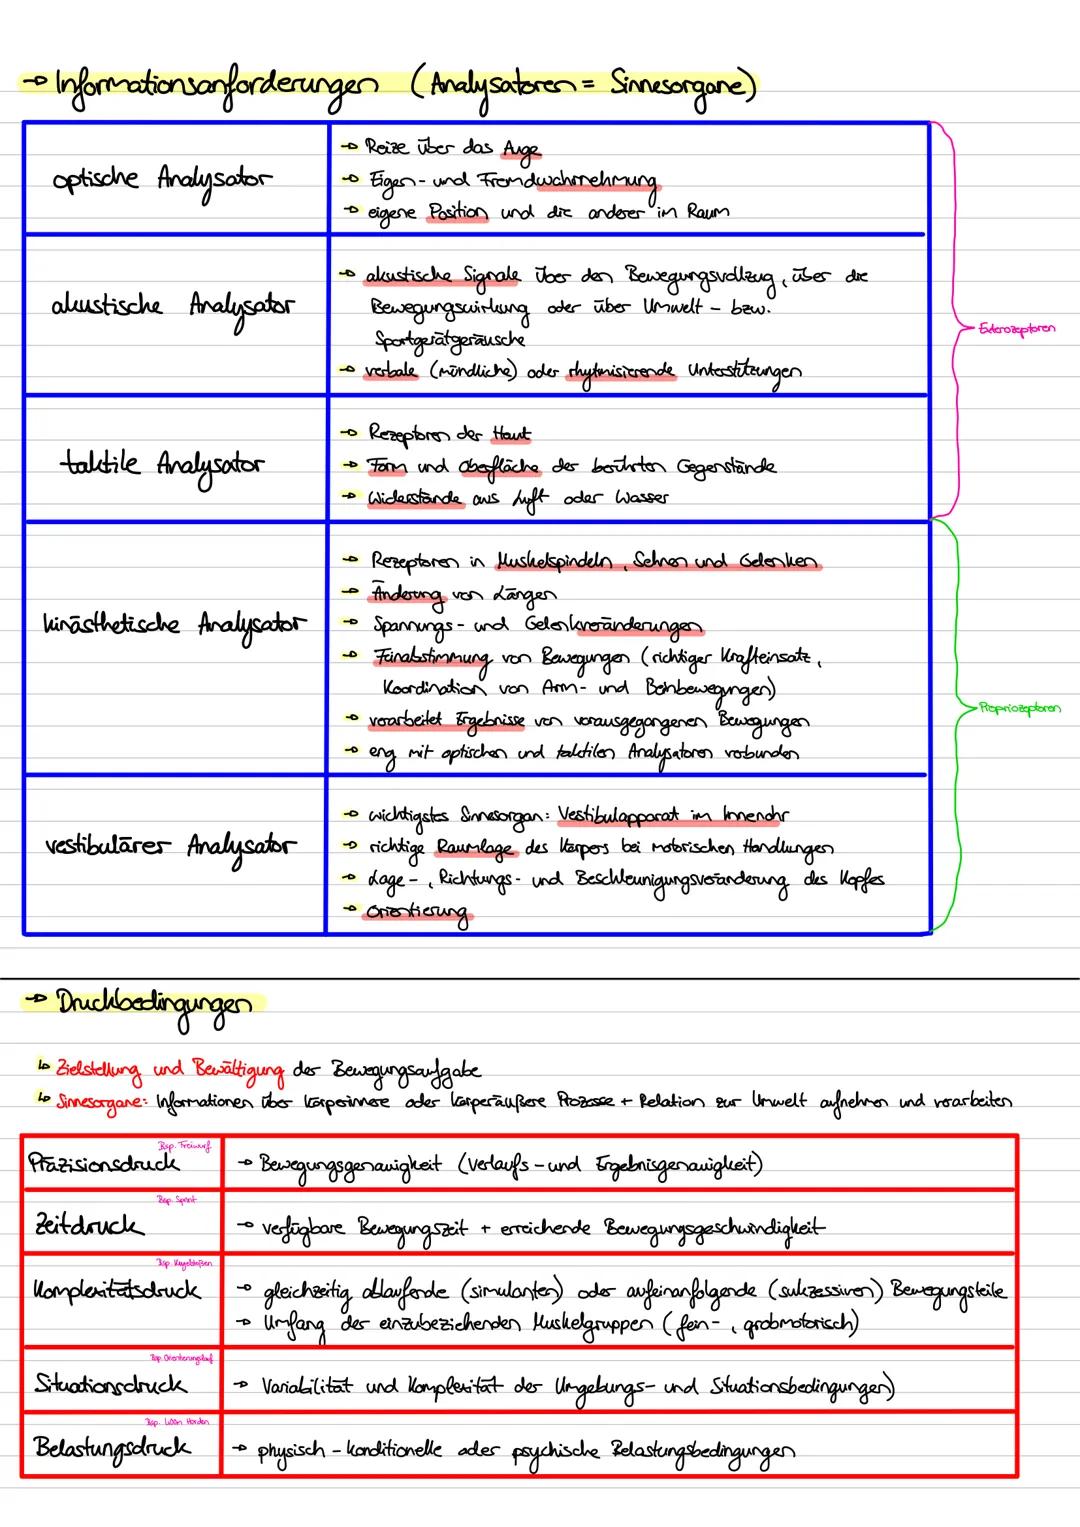 → Informationsanforderungen (Analysatoren = Sinnesorgane)
optische Analysator
→ Reize über das Auge
→ Eigen- und Fremdwahrnehmung
→ eigene Position und die anderer im Raum
akustische Analysator
→ akustische Signale über den Bewegungsvollzug, über die
Bewegungswirkung oder über Umwelt- bzw.
Sportgerätgeräusche
→ verbale (mündliche) oder rhytmisierende Unterstützungen
Exterozeptoren
taktile Analysator
→ Rezeptoren der Haut
→ Form und Oberfläche der berührten Gegenstände
→ Widerstände aus Luft oder Wasser
kinästhetische Analysator
→ Rezeptoren in Muskelspindeln, Sehnen und Gelenken
→ Änderung von Längen
→ Spannungs- und Gelenkveränderungen
→ Feinabstimmung von Bewegungen (richtiger Krafteinsatz,
Koordination von Arm- und Beinbewegungen)
→ verarbeitet Ergebnisse von vorausgegangenen Bewegungen
→ eng mit optischen und taktilen Analysatoren verbunden
Propriozeptoren
vestibulärer Analysator
→ wichtigstes Sinnesorgan: Vestibulapparat im Innenohr
→ richtige Raumlage des Körpers bei motorischen Handlungen
→ Lage-, Richtungs- und Beschleunigungsveränderung des Kopfes
→ Orientierung
→ Druckbedingungen
↳ Zielstellung und Bewältigung der Bewegungsaufgabe
↳ Sinnesorgane: Informationen über körperinnere oder körperäußere Prozesse + Relation zur Umwelt aufnehmen und verarbeiten
Bsp. Freiwurf
Präzisionsdruck
→ Bewegungsgenauigkeit (Verlaufs- und Ergebnisgenauigkeit)
Bsp. Sprint
Zeitdruck
→ verfügbare Bewegungszeit + erreichende Bewegungsgeschwindigkeit
Bsp. Kugelstoßen
Komplexitätsdruck
→ gleichzeitig ablaufende (simulanten) oder aufeinanfolgende (sukzessiven) Bewegungsteile
→ Umfang der einzubeziehenden Muskelgruppen (fein-, grobmotorisch)
Bsp. Orientierungslauf
Situationsdruck
→ Variabilität und Komplexität der Umgebungs- und Situationsbedingungen)
Bsp. 400m Hürden
Belastungsdruck
→ physisch-konditionelle oder psychische Belastungsbedingungen